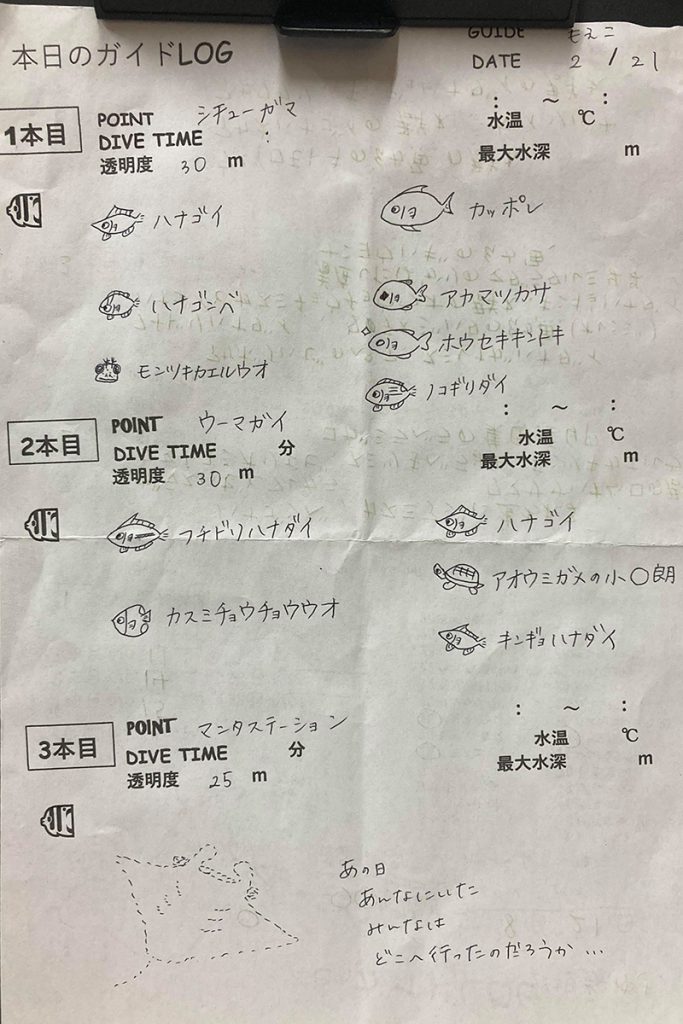 本日のガイドLOG
GUIDE もえこ
DATE 2 / 21
1本目
POINT シチューガマ
DIVE TIME :
透明度 30 m
: ～ :
水温 ℃
最大水深 m
ハナゴイ
ハナゴンベ
モンツキカエルウオ
カッポレ
アカマツカサ
ホウセキキントキ
ノコギリダイ
2本目
POINT ウーマガイ
DIVE TIME 分
透明度 30 m
: ～ :
水温 ℃
最大水深 m
フチドリハナダイ
カスミチョウチョウウオ
ハナゴイ
アオウミガメの小〇朗
キンギョハナダイ
3本目
POINT マンタステーション
DIVE TIME 分
透明度 25 m
: ～ :
水温 ℃
最大水深 m
あの日
あんなにいた
みんなは
どこへ行ったのだろうか…